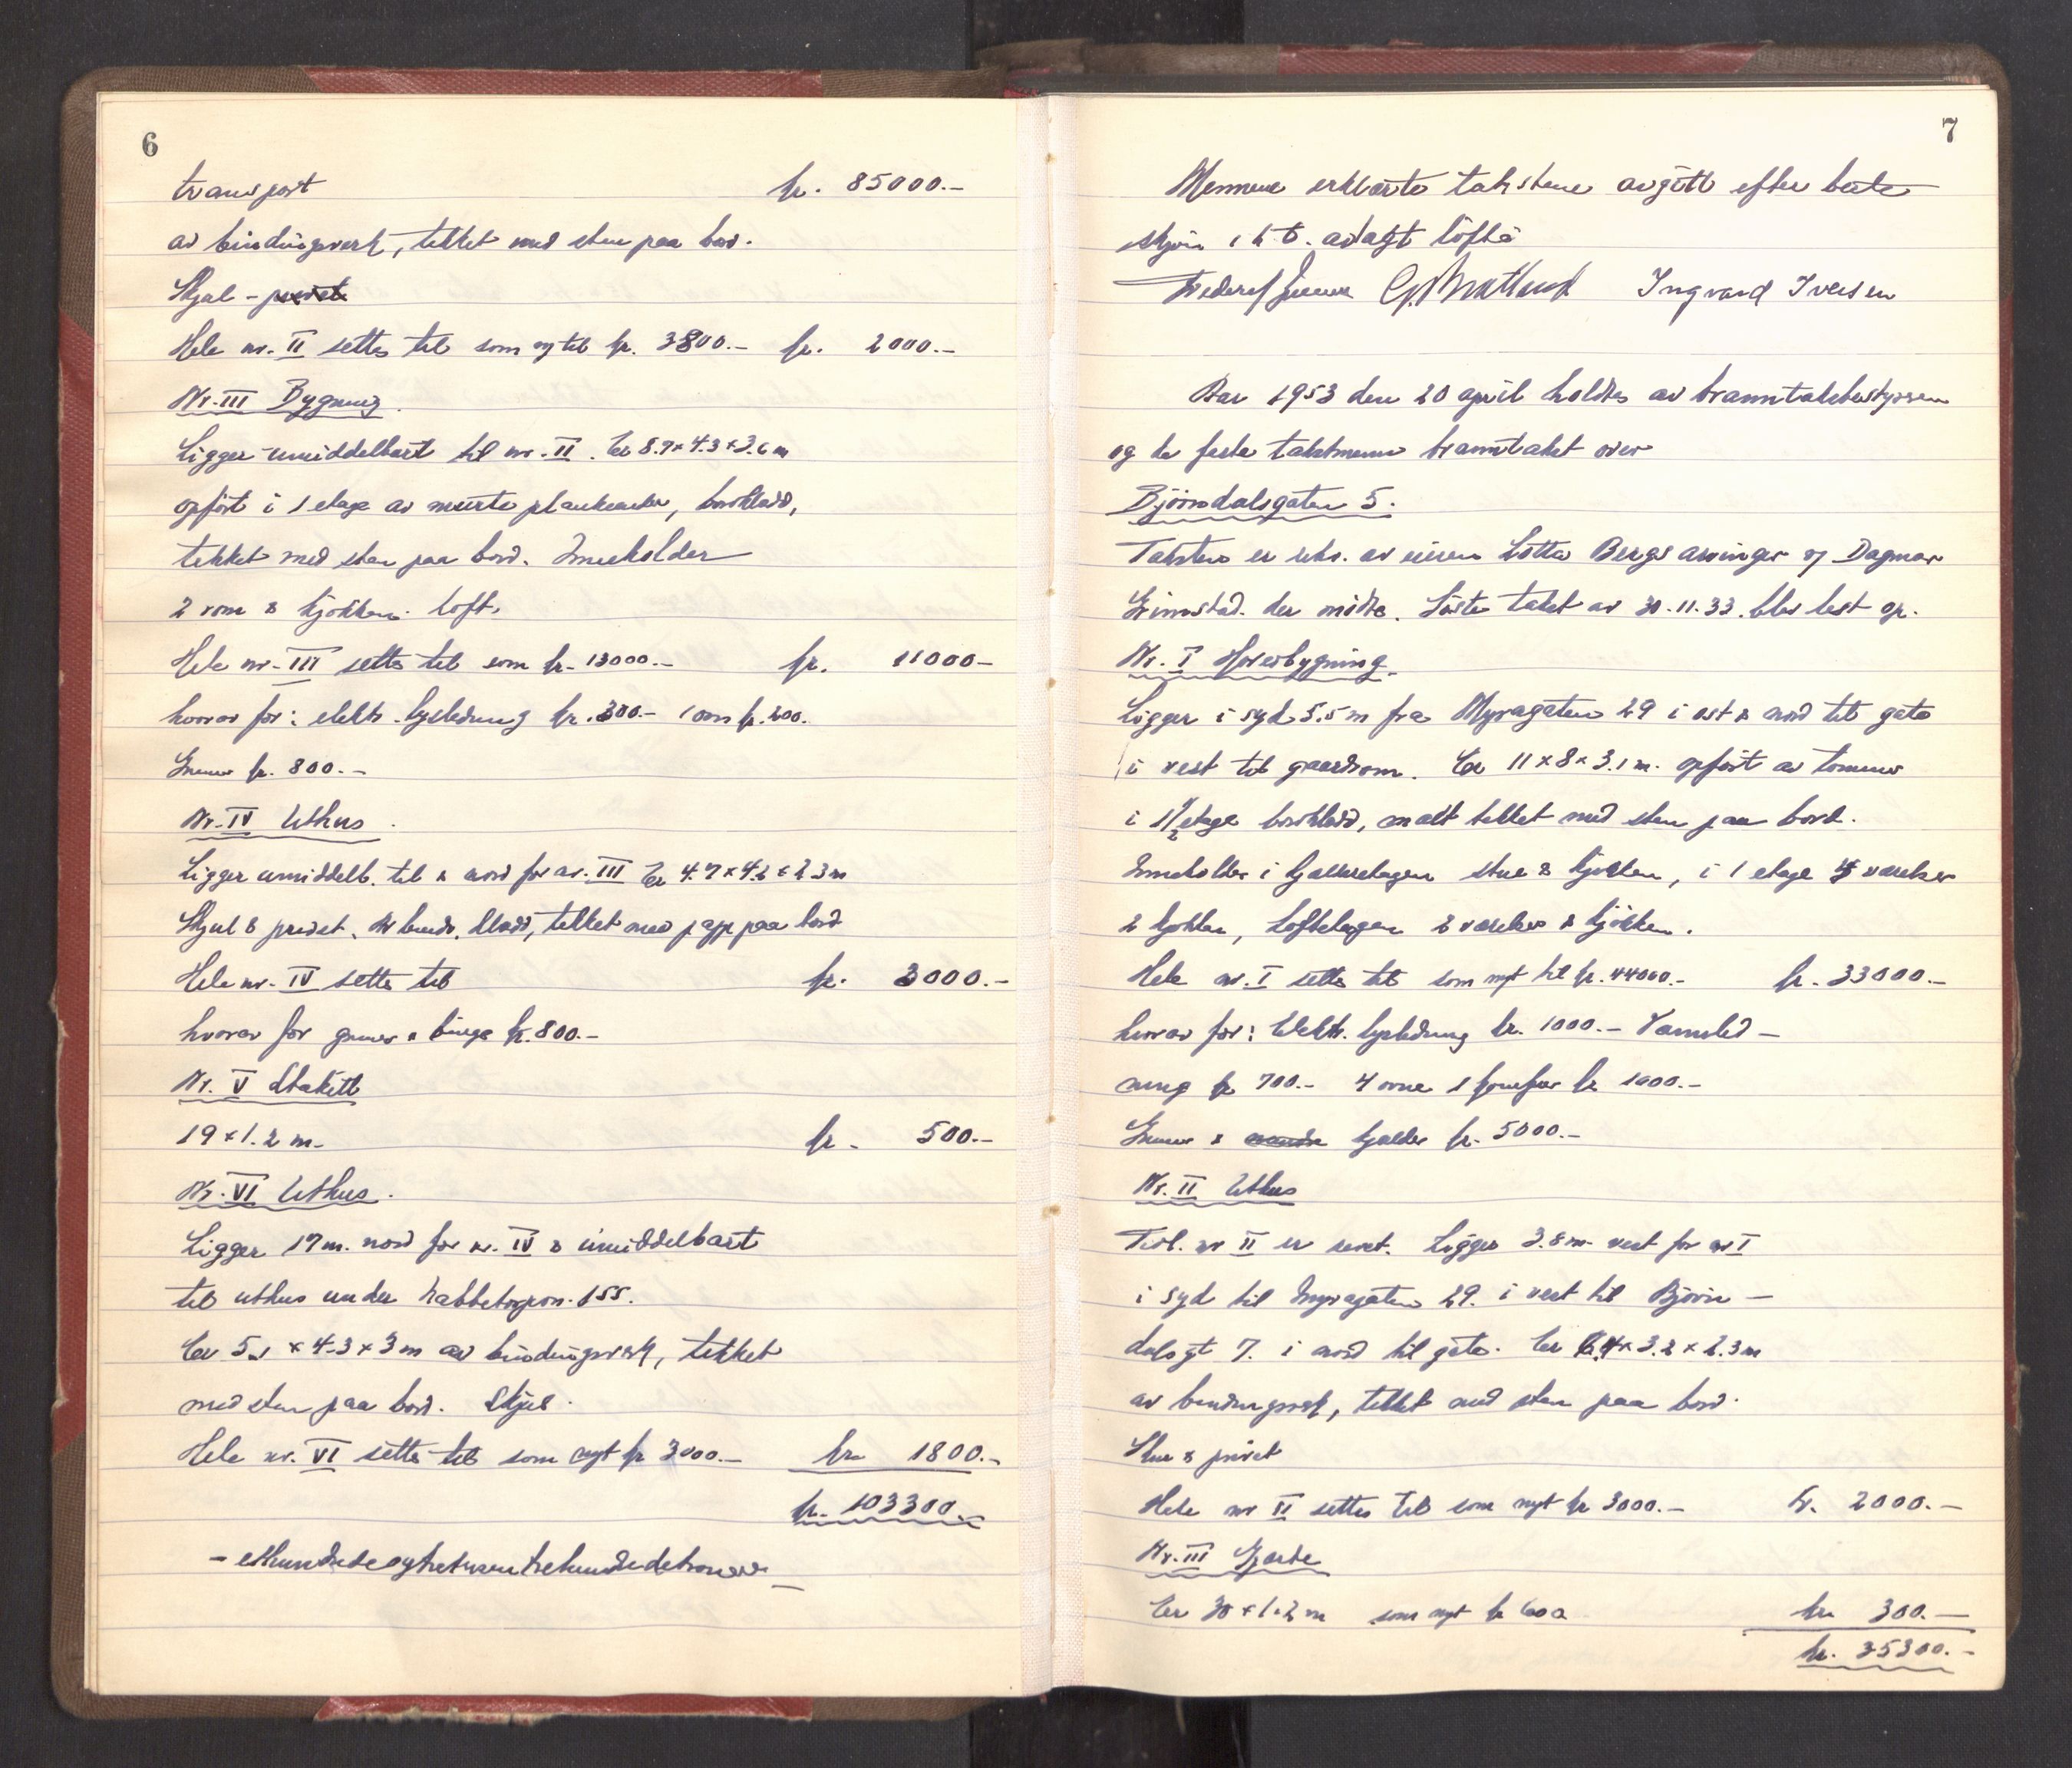 6
transport kr. 85000.-
av bindingsverk, tekket med sten paa bord.
Skjul - privet
Hele nr. II settes til som nytt kr. 3800.- kr. 2000.-
Nr. III Bygning.
Ligger umiddelbart til nr. II. Er 8.7 x 4.3 x 3.6 m
opført i 1 etage av murte plankeender, bordkladd,
tekket med sten paa bord. Inneholder
2 rom & kjøkken. loft.
Hele nr. III settes til som kr. 13000.- kr. 11000-
hvorav for: elektr. lysledning kr. 300.- 1 ovn kr. 200.
Grunnm. kr. 800.-
Nr. IV Uthus.
Ligger umiddelb. til & nord for nr. III Er 4.7 x 4.2 x 2.3 m
Skjul & privet. Av bindv. kladd, tekket med papp paa bord
Hele nr. IV settes til kr. 3000.-
hvorav for grunnm & binge kr. 800.-
Nr. V Stakitt
19 x 1.2 m. kr. 500.-
Nr. VI Uthus.
Ligger 17 m. nord for nr. IV & umiddelbart
til uthus under Nabbetorpvn. 155.
Er 5.1 x 4.3 x 3 m av bindingsverk, tekket
med sten paa bord. Skjul.
Hele nr. VI settes til som nytt kr 3000.- kr. 1800.-
kr. 103300.-
- etthundredeogtretusentrehundredekroner -
7
Mennene erklærte takstene avgitt efter beste
skjøn i h.t. avlagt løfte
Ingvard Iversen
Aar 1953 den 20 april holdtes av branntakstbestyreren
og de faste takstmenn branntakst over
Bjørndalsgaten 5.
Taksten er rekv. av eieren Lotta Bergs arvinger v/ Dagmar
Grimstad. der møtte. Siste takst av 30.11.33. blev lest op.
Nr. I Hovedbygning.
Ligger i syd 5.5 m fra Myragaten 29 i øst & nord til gate
i vest til gaardsrom. Er 11 x 8 x 3.1 m. opført av tømmer
i 1 1/2 etage bordkladd, malt tekket med sten paa bord.
Inneholder i kjelleretagen stue & kjøkken, i 1 etage 4 værelser
2 kjøkken, Loftetagen 2 værelser & kjøkken.
Hele nr. I settes til som nytt til kr. 44000.- kr. 33000.-
hvorav for: Elektr. lysledning kr. 1000.- Vannled-
ning kr 700.- 4 ovner 1 komfyr kr 1000.-
Grunnm & kjelder kr. 5000.-
Nr. II Uthus
Tidl. nr II er revet. Ligger 3.8 m. vest for nr I
i syd til Myragaten 29. i vest til Bjørn-
dalsgt 7. i nord til gate. Er 6.4 x 3.2 x 2.3 m
av bindingsverk, tekket med sten paa bord.
Stue & privet
Hele nr II settes til som nytt kr 3000.- kr. 2000.-
Nr. III Gjærde
Er 30 x 1.2 m som nytt kr 600 kr. 300.-
kr. 35300.-